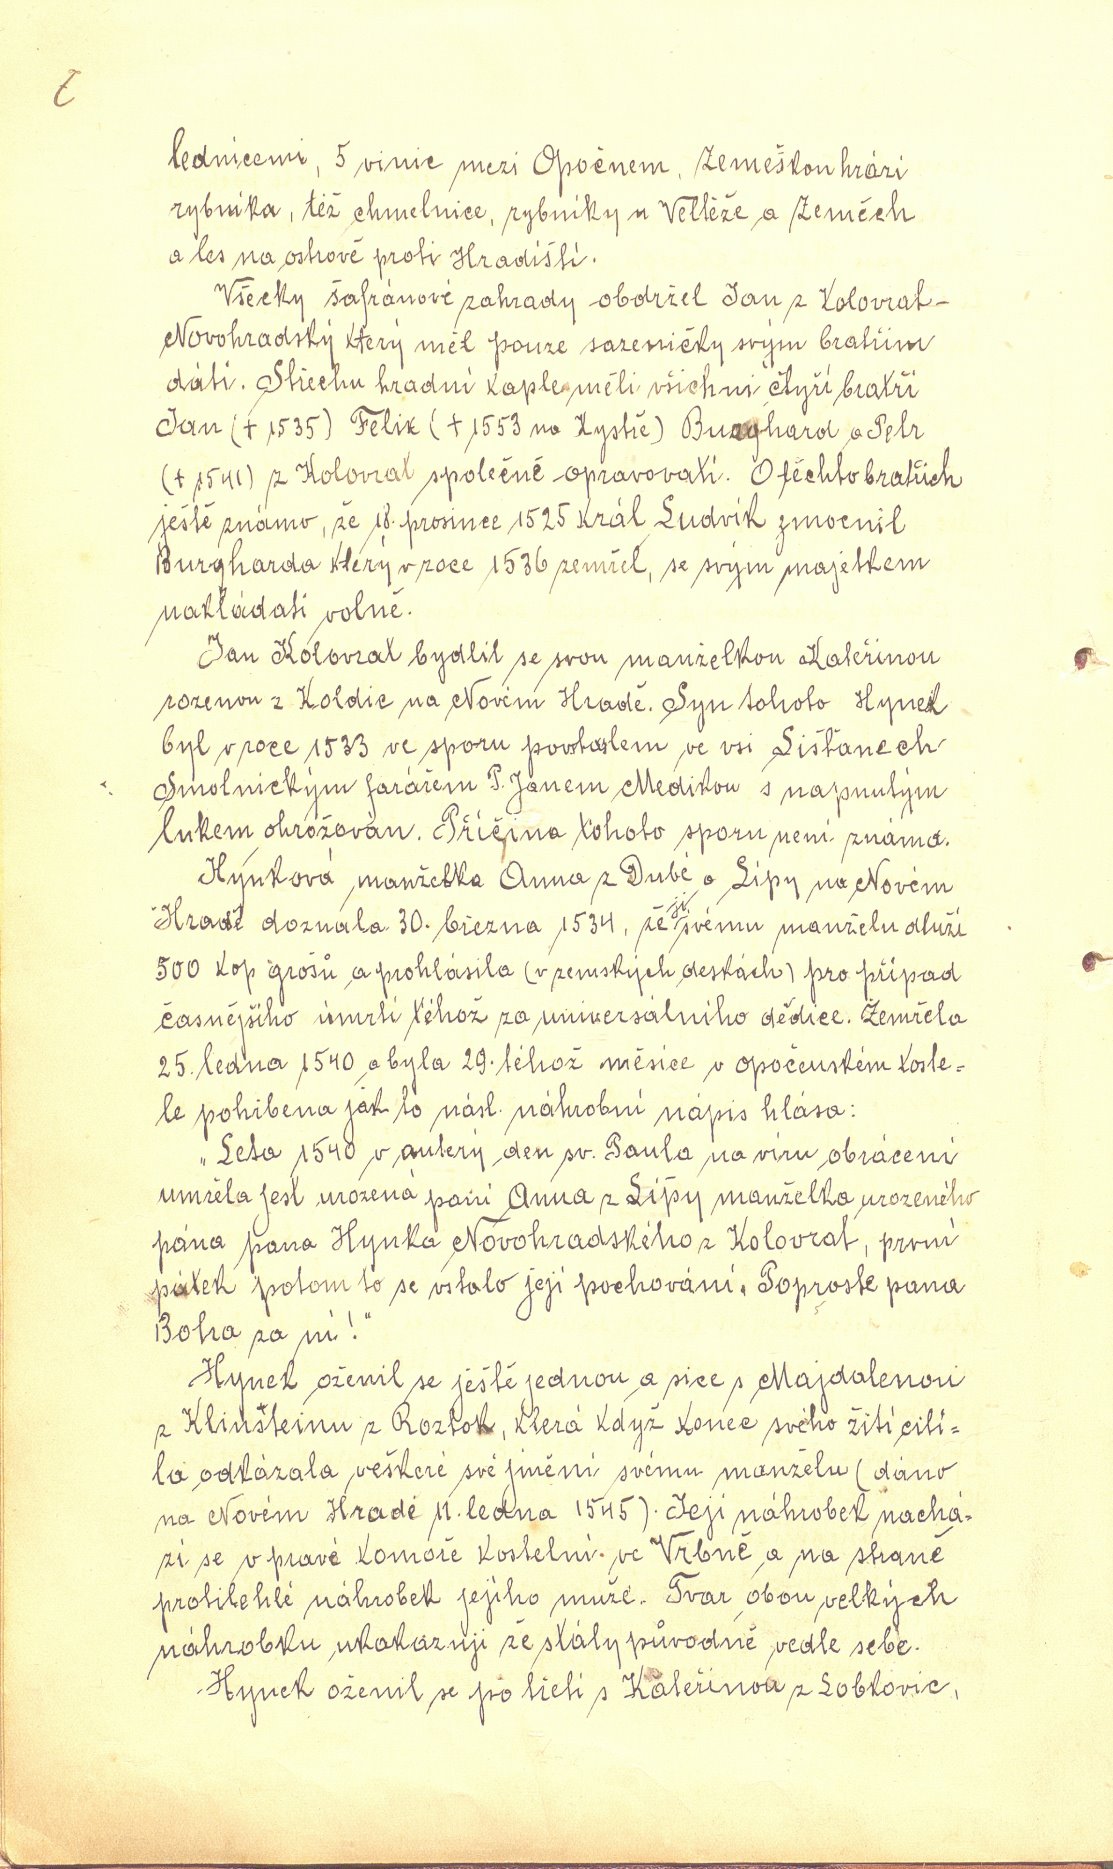 lednicemi, 5 vinic mezi Opočnem, Zeměškou hrází
rybníka, též chmelnice, rybníky u Veltěže a Zeměch
a les na ostrově proti Hradišti.
Všecky šafránové zahrady obdržel Jan z Kolovrat-
Novohradský který měl pouze sazeničky svým bratřím
dáti. Střechu hradní kaple měli všichni čtyři bratři
Jan († 1535) Felix († 1553 na Kystře) Burghard a Petr
(† 1541) z Kolovrat společně opravovati. O těchto bratřích
ještě známo, že 18. prosince 1525 král Ludvík zmocnil
Burgharda který v roce 1536 zemřel, se svým majetkem
nakládati volně.
Jan Kolovrat bydlil se svou manželkou Kateřinou
rozenou z Koldic na Novém Hradě. Syn tohoto Hynek
byl v roce 1533 ve sporu povstalem ve vsi Lišťanech
Smolnickým farářem P. Janem Medikou s napnutým
lukem ohrožován. Příčina tohoto sporu není známa.
Hynková manželka Anna z Dubé a Lípy na Novém
Hradě doznala 30. března 1534, že jí svému manželu dluží
500 kop grošů a prohlásila (v zemských deskách) pro případ
časnějšího úmrtí téhož za universálního dědice. Zemřela
25. ledna 1540 a byla 29. téhož měsíce v opočenském koste=
le pohřbena jak to násl. náhrobní nápis hlása:
„Leta 1540 v autery den sv. Paula na víru obrácení
umřela jest urozená paní Anna z Lípy manželka urozeného
pána pana Hynka Novohradského z Kolovrat, první
pátek potom to se vstalo její pochování. Poproste pana
Boha za ní!"
Hynek oženil se ještě jednou a sice s Majdalenou
z Klinšteinu z Roztok, která když konec svého žití cíti=
la odkázala veškeré své jmění svému manželu (dáno
na Novém Hradě 11. ledna 1545). Její náhrobek nachá=
zí se v pravé komoře kostelní ve Vrbně a na straně
protilehlé náhrobek jejího muže. Tvar obou velkých
náhrobku ukakazují že stály původně vedle sebe.
Hynek oženil se po třetí s Kateřinou z Lobkovic,